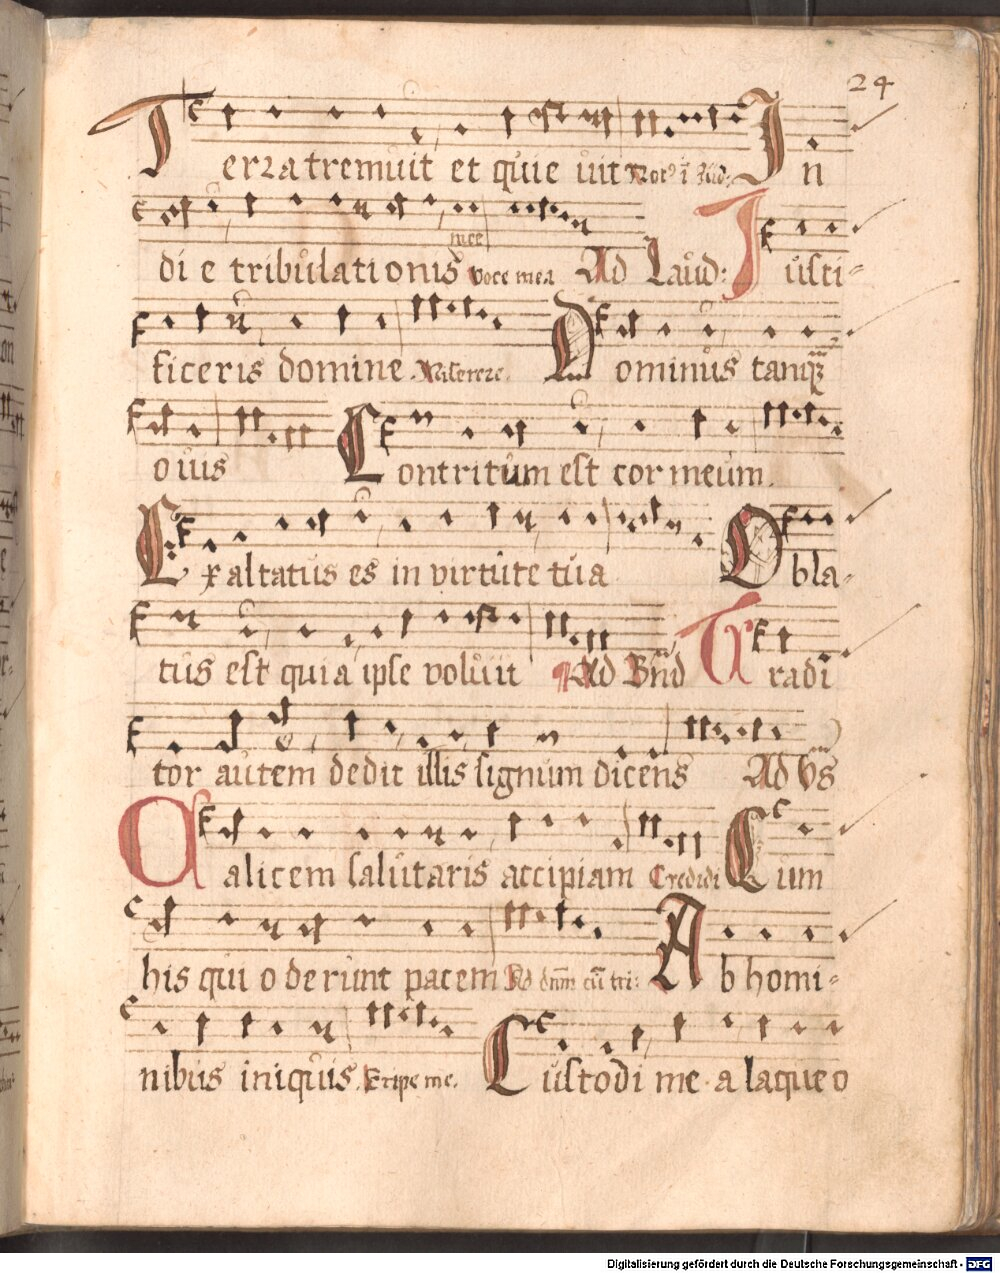 24
Terra tremuit et quie uit In
di e tribulationis mee voce mea Ad Laud: Iusti-
ficeris domine. Miserere. Dominus tanq
ouis Contritum est cor meum.
Exaltatus es in virtute tua Obla-
tus est quia ipse voluit Ad Bnd Tradi
tor autem dedit illis signum dicens Ad Vs
Calicem salutaris accipiam Credidi Cum
his qui oderunt pacem Ad dnm cu tri: Ab homi-
nibus iniquis. Eripe me. Custodi me a laqueo
Digitalisierung gefördert durch die Deutsche Forschungsgemeinschaft - DFG